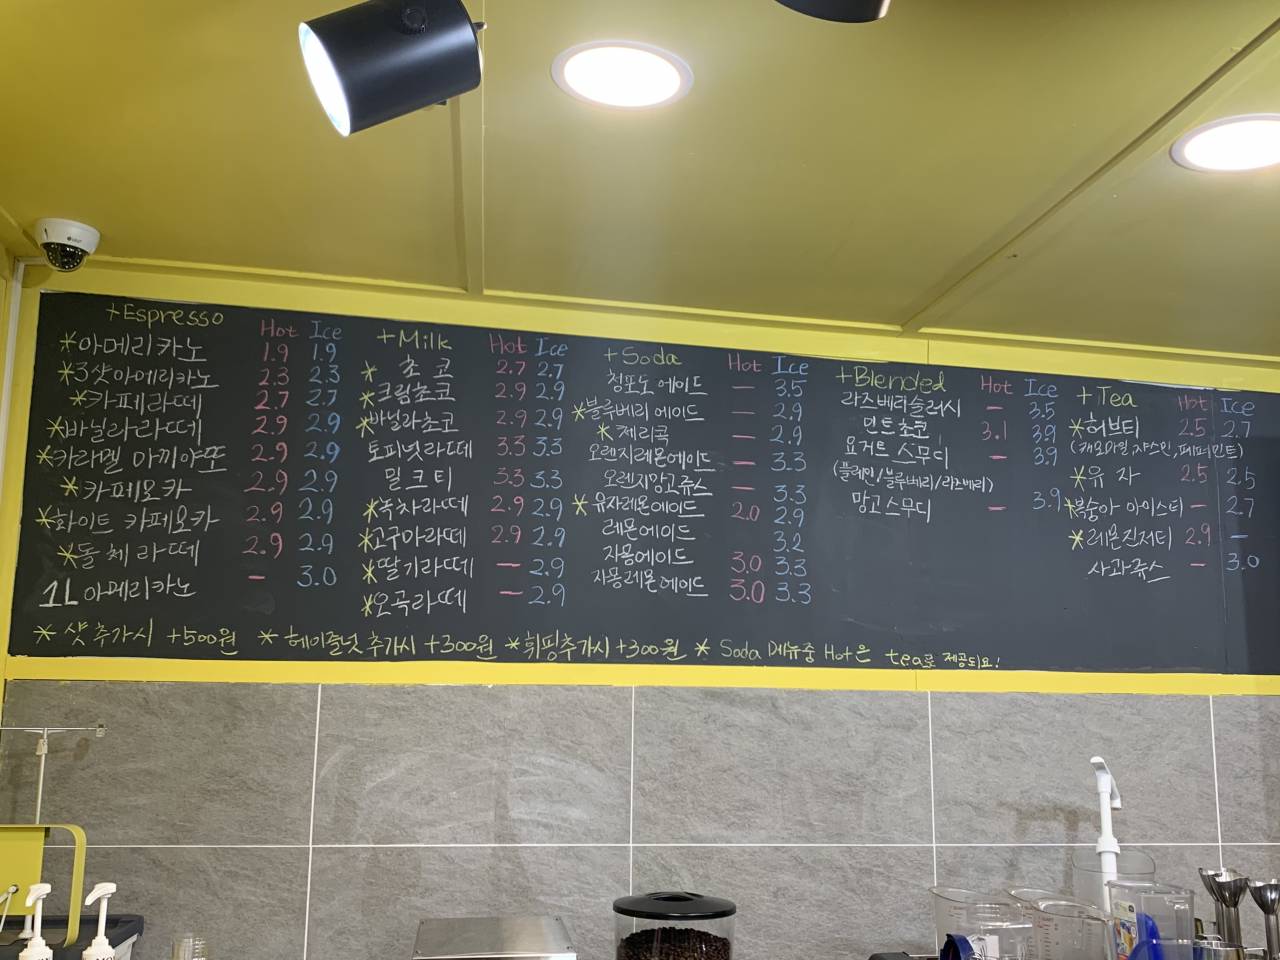 +Espresso Hot Ice
*아메리카노 1.9 1.9
*3샷아메리카노 2.3 2.3
*카페라떼 2.7 2.7
*바닐라라떼 2.9 2.9
*카라멜 마끼아또 2.9 2.9
*카페모카 2.9 2.9
*화이트 카페모카 2.9 2.9
*돌체라떼 2.9 2.9
1L 아메리카노 - 3.0
+Milk Hot Ice
* 초코 2.7 2.7
*크림초코 2.9 2.9
*바닐라초코 2.9 2.9
토피넛라떼 3.3 3.3
밀크티 3.3 3.3
*녹차라떼 2.9 2.9
*고구마라떼 2.9 2.9
*딸기라떼 - 2.9
*오곡라떼 - 2.9
+Soda Hot Ice
청포도에이드 - 3.5
*블루베리에이드 - 2.9
*체리콕 - 2.9
오렌지레몬에이드 - 3.3
오렌지망고쥬스 - 3.3
*유자레몬에이드 2.0 2.9
레몬에이드 3.2
자몽에이드 3.0 3.3
자몽레몬에이드 3.0 3.3
+Blended Hot Ice
라즈베리슬러시 - 3.5
민트초코 3.1 3.9
요거트 스무디 - 3.9
(플레인/블루베리/라즈베리)
망고스무디 - 3.9
+Tea Hot Ice
*허브티 2.5 2.7
(캐모마일,쟈스민,페퍼민트)
*유자 2.5 2.5
*복숭아 아이스티 - 2.7
*레몬진저티 2.9 -
사과쥬스 - 3.0
* 샷추가시 +500원 * 헤이즐넛 추가시 +300원 *휘핑추가시 +300원 * Soda 메뉴중 Hot은 tea로 제공되요!